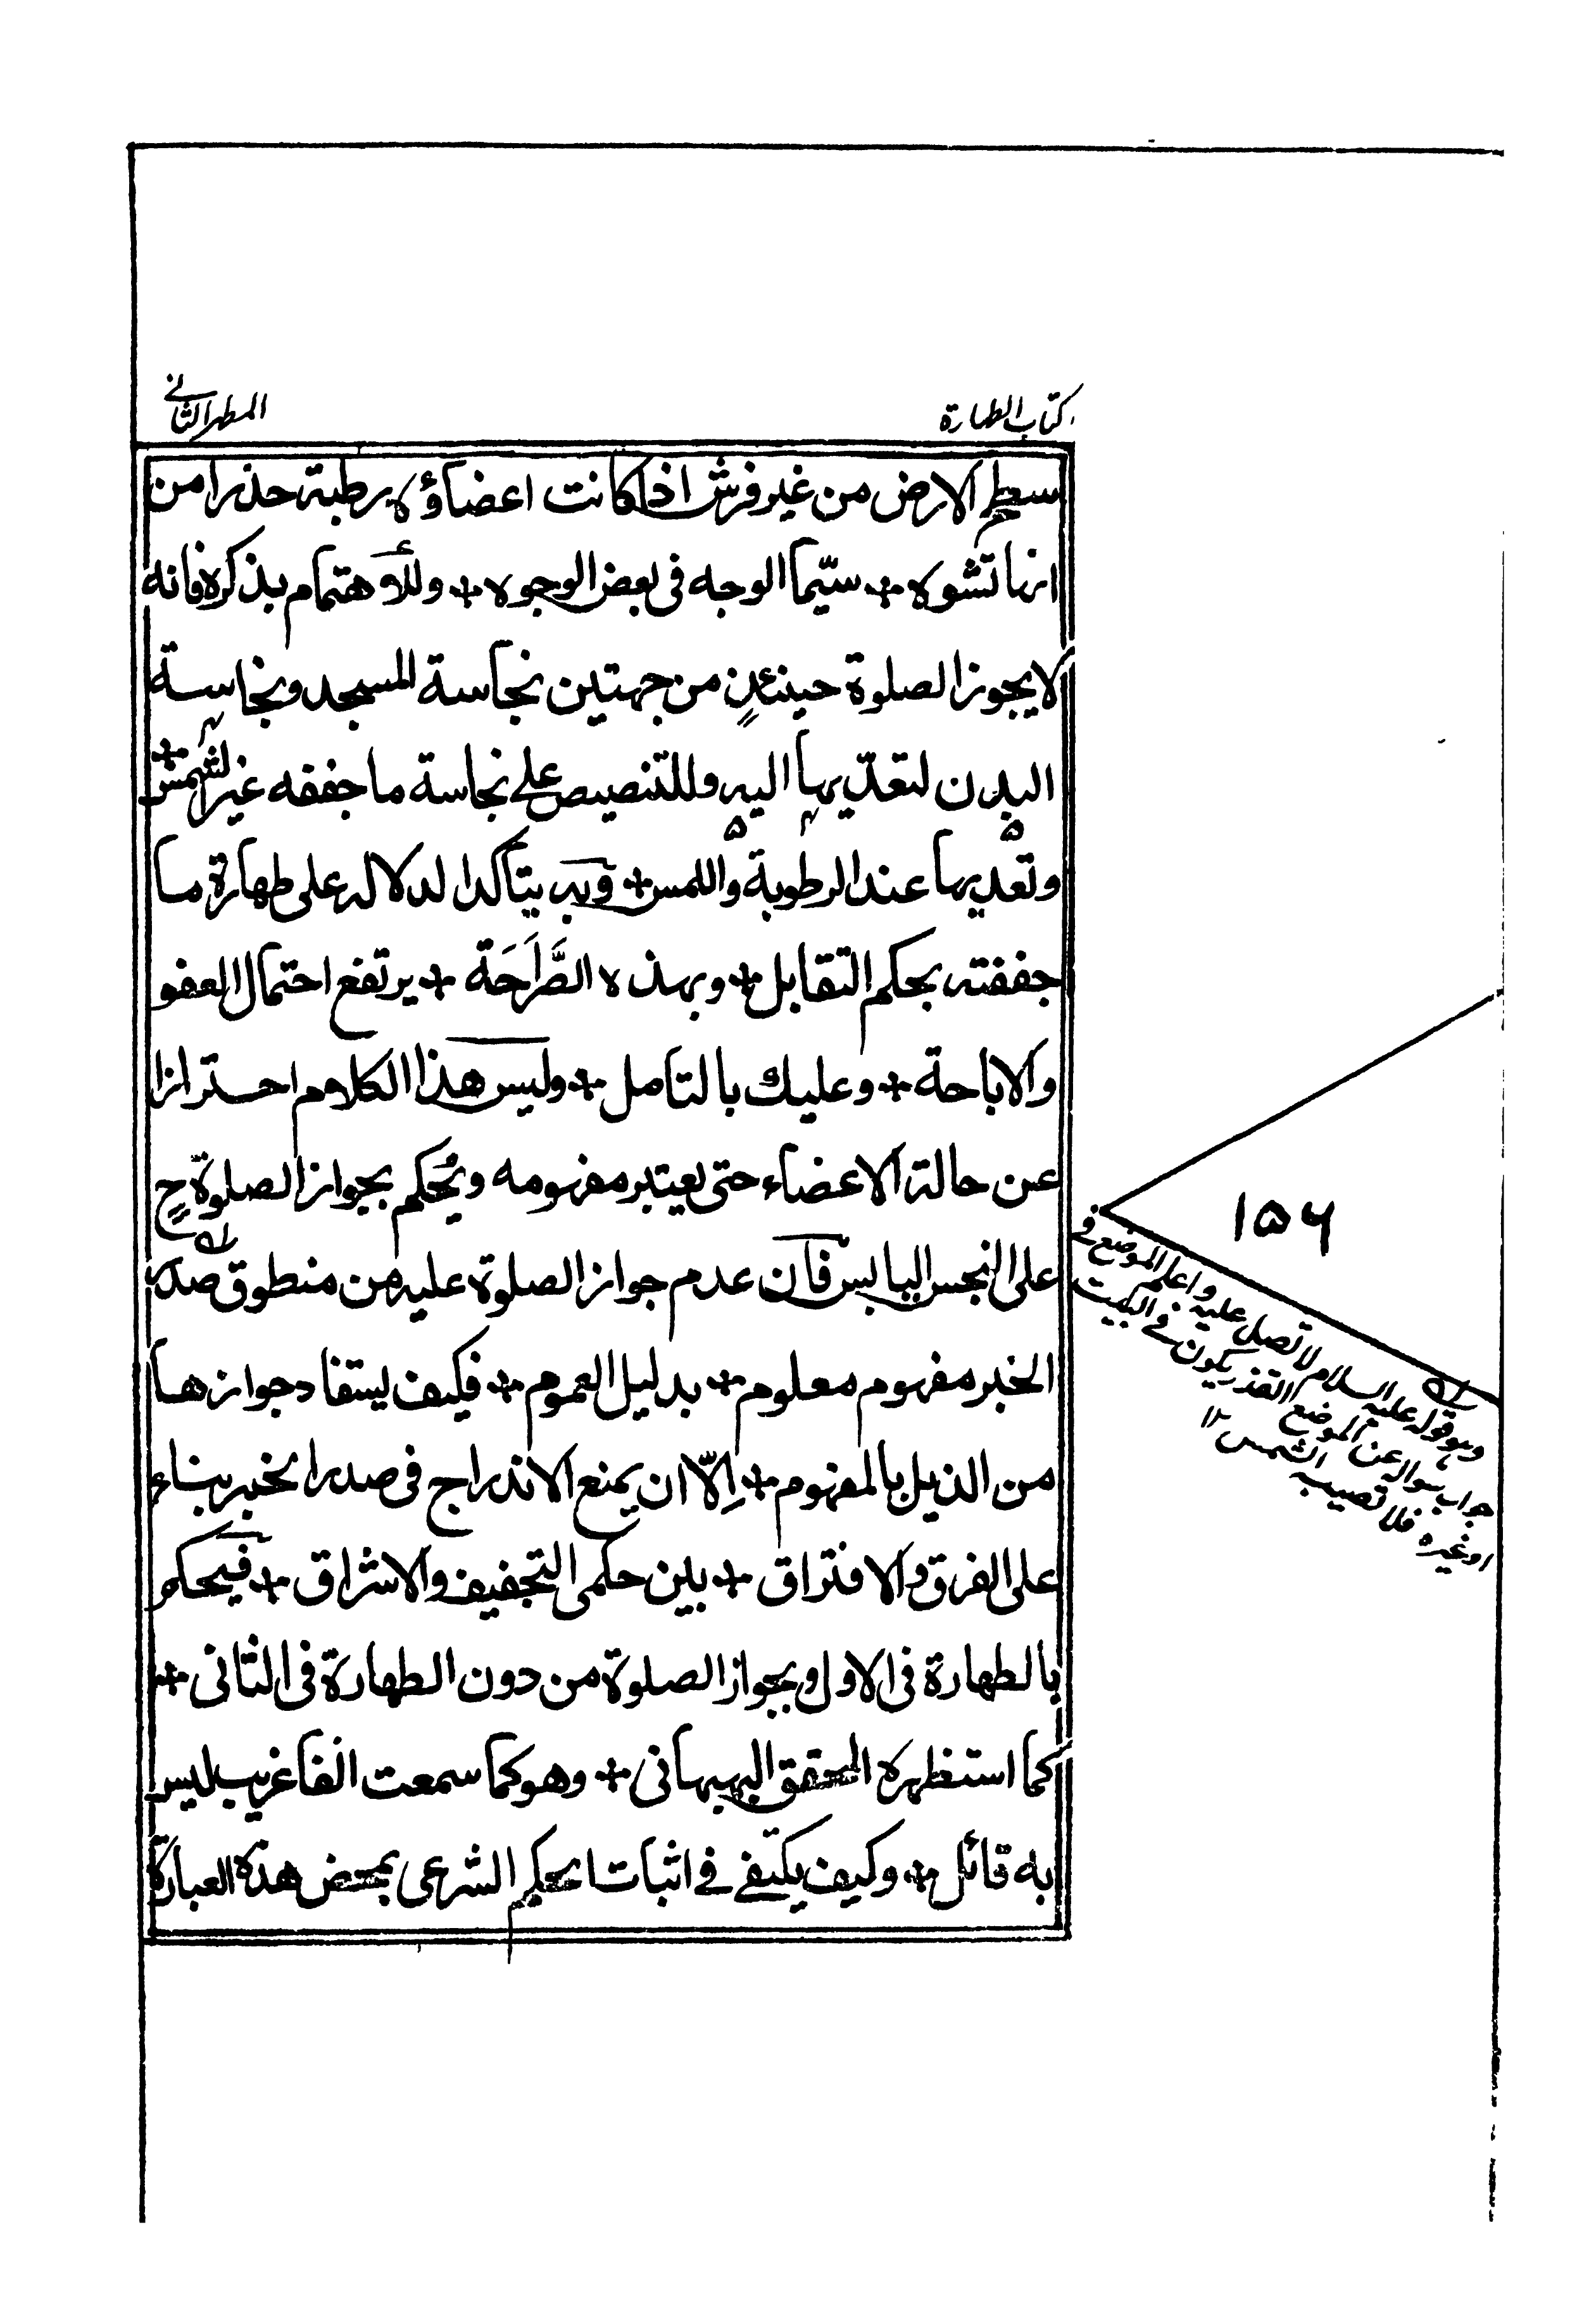 كتاب الطهارة
المطهر الثاني
سطح الارض من غير فرش اذا كانت اعضاؤه رطبة حذرا من
انها تشوه + سيّما الوجه فى بعض الوجوه + وللاهتمام بذكره فانه
لا يجوز الصلوة حينئذٍ من جهتين نجاسة المسجد ونجاسة
البدن لتعدّيها اليه وللتنصيص على نجاسة ما جففه غير الشمس +
وتعديها عند الرطوبة واللمس + وبه يتأكد الدلالة على طهارة ما
جففته بحكم التقابل + وبهذه الصَّرَاحَة + يرتفع احتمال العفو
والاباحة + وعليك بالتامل + وليس هذا الكلام احترازا
عن حالة الاعضاء حتى يعتبر مفهومه ويُحكم بجواز الصلوة حٍ
على النجس اليابس فان عدم جواز الصلوة عليه من منطوق صدر
الخبر مفهوم معلوم + بدليل العموم + فكيف يستفاد جوازها
من الذيل بالمفهوم + اِلّا ان يمنع الاندراج فى صدر الخبر بناء
على الفرق والافتراق + بين حكمى التجفيف والاشراق + فيحكم
بالطهارة فى الاول وبجواز الصلوة من دون الطهارة فى الثانى +
كما استظهره المحقق البهبهانى + وهو كما سمعت انفا غريب ليس
به قائل + وكيف يكتفى فى اثبات الحكم الشرعى بمحض هذه العبارة
١٥٦
وهو قوله عليه السلام لا تصل عليه واعلم الموضع فى
جواب سواله عن الموضع القذر يكون فى البيت
او غيره فلا تصيبه الشمس ١٢